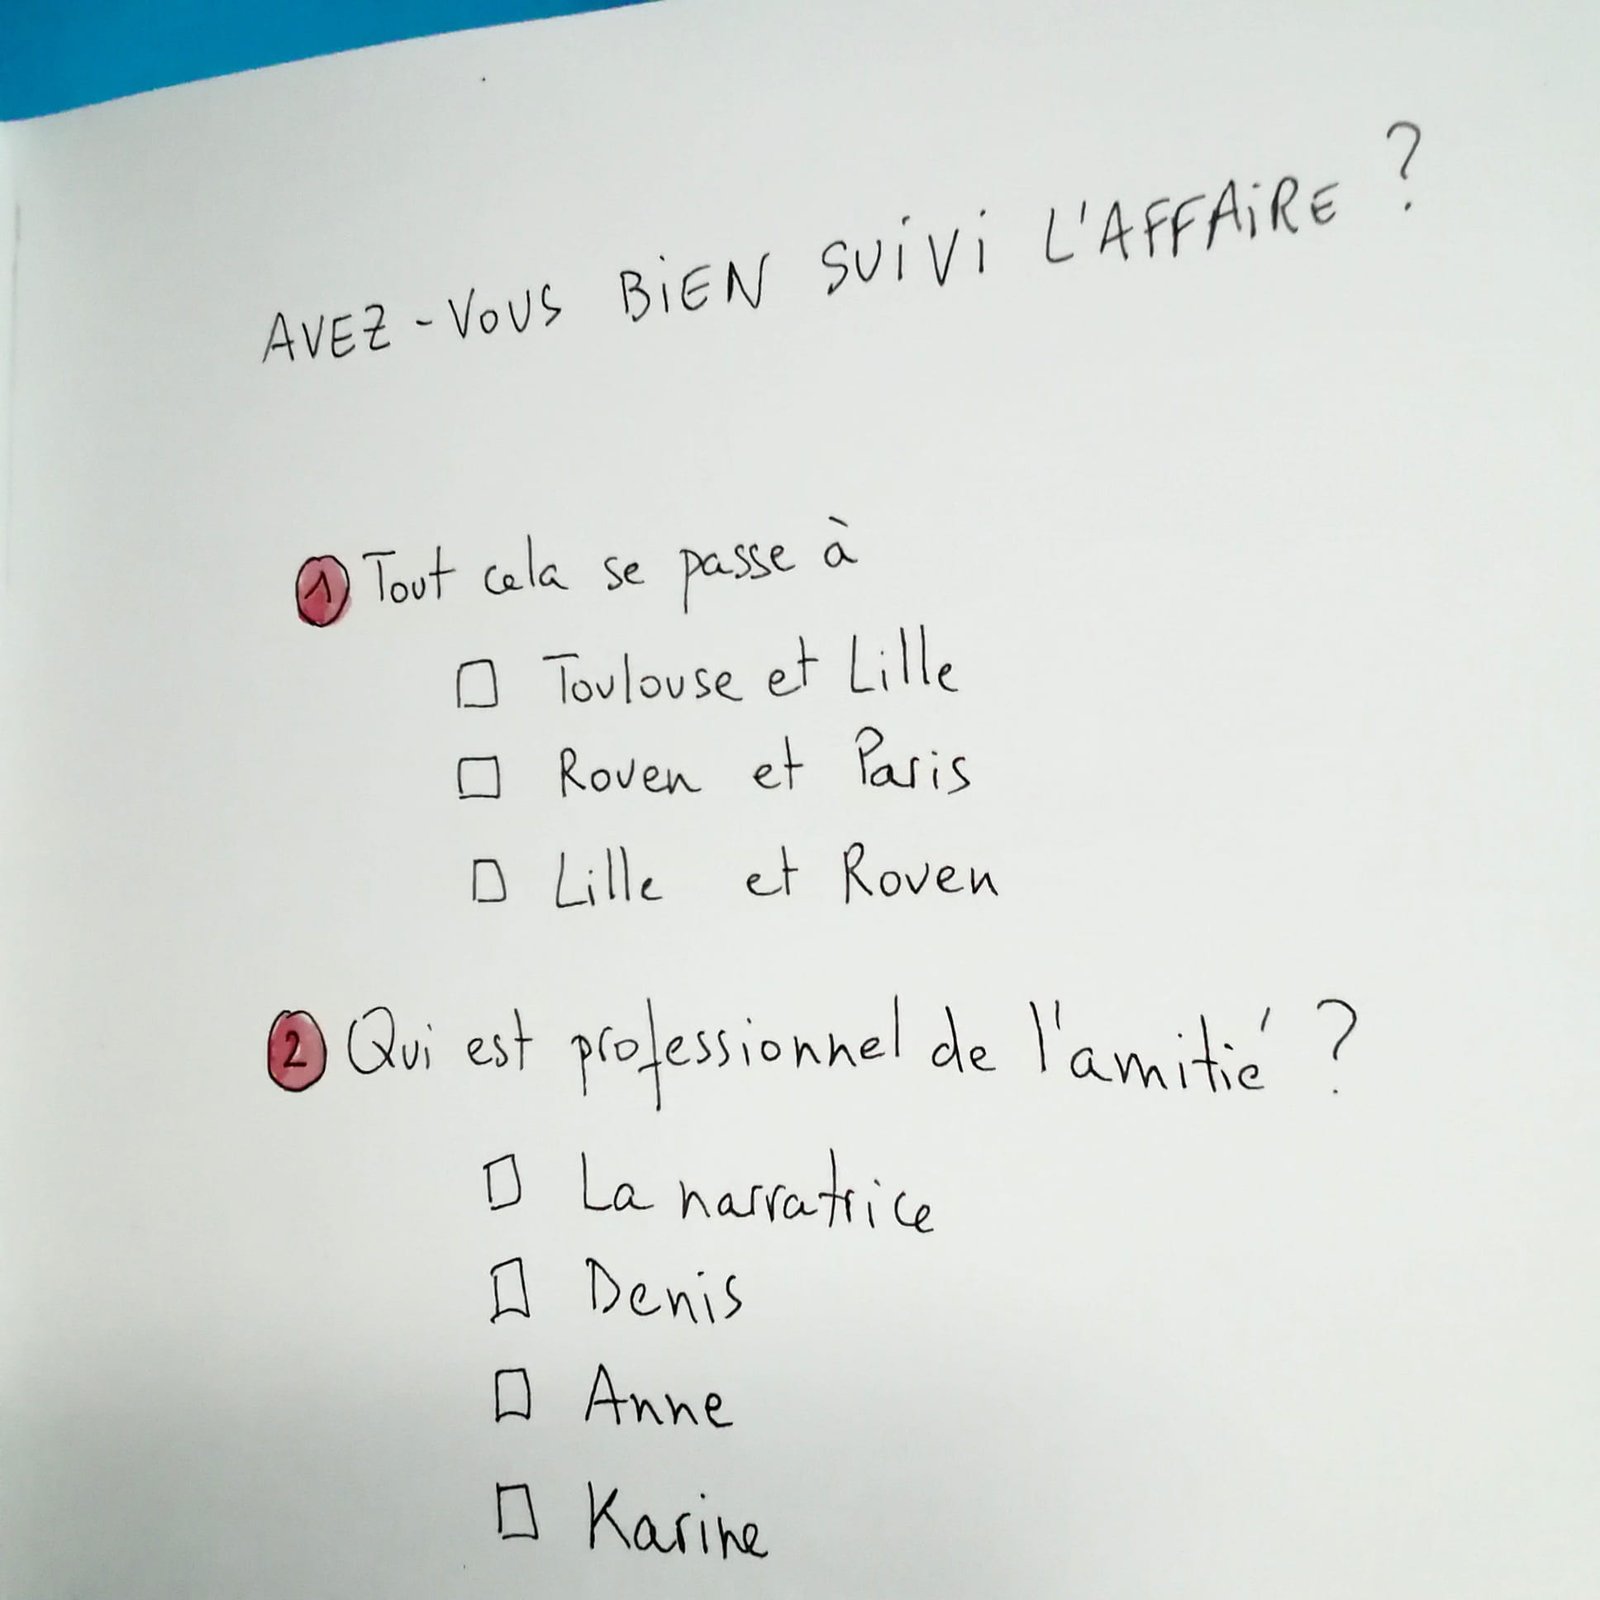 AVEZ-VOUS BIEN SUIVI L'AFFAIRE ?
1 Tout cela se passe à
□ Toulouse et Lille
□ Rouen et Paris
□ Lille et Rouen
2 Qui est professionnel de l'amitié ?
□ La narratrice
□ Denis
□ Anne
□ Karine